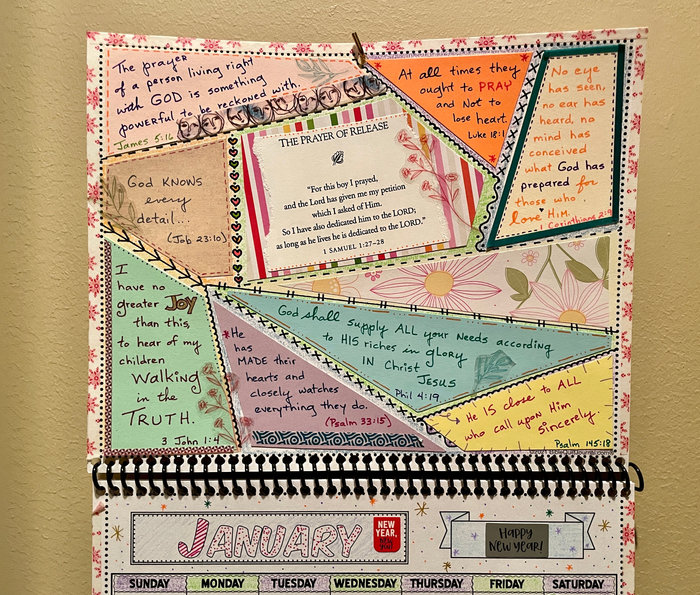 The prayer
of a person living right
with GOD is something
powerful to be reckoned with.
James 5:16
At all times they
ought to PRAY
and Not to
lose heart.
Luke 18:1
No eye
has seen,
no ear has
heard, no
mind has
conceived
what God has
prepared for
those who
love HiM.
1 Corinthians 2:9
God KNOWS
every
detail...
(Job 23:10)
THE PRAYER OF RELEASE
"For this boy I prayed,
and the Lord has given me my petition
which I asked of Him.
So I have also dedicated him to the LORD;
as long as he lives he is dedicated to the LORD."
1 SAMUEL 1:27–28
I
have no
greater Joy
than this,
to hear of my
children
Walking
in the
TRUTH.
3 John 1:4
He
has
MADE their
hearts and
closely watches
everything they do.
(Psalm 33:15)
God shall supply ALL your Needs according
to HIS riches in glory
IN Christ
Jesus
Phil 4:19
He IS close to ALL
who call upon Him
sincerely.
Psalm 145:18
JANUARY
NEW
YEAR,
HAPPY
NEW YEAR!
SUNDAY MONDAY TUESDAY WEDNESDAY THURSDAY FRIDAY SATURDAY